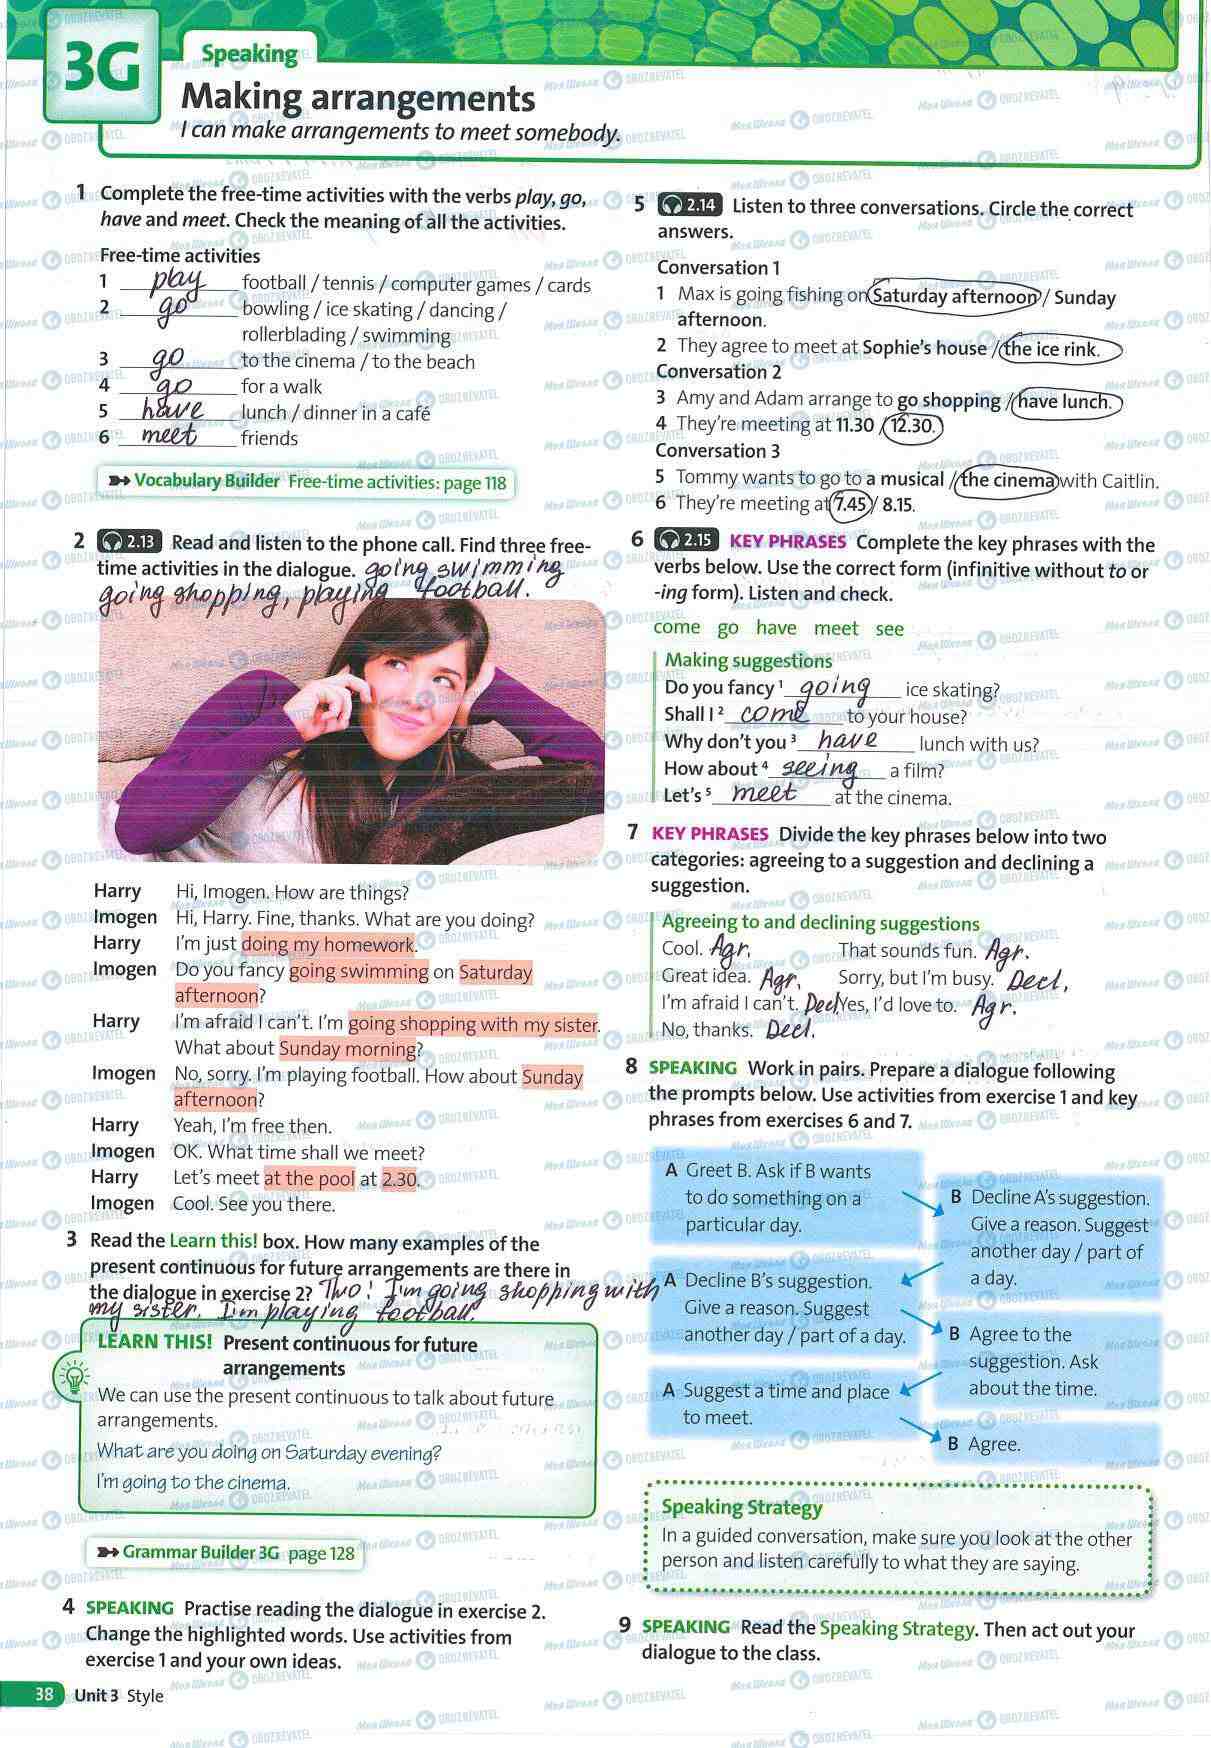 3G
Speaking
Making arrangements
I can make arrangements to meet somebody.
1 Complete the free-time activities with the verbs play, go,
have and meet. Check the meaning of all the activities.
Free-time activities
1 play football / tennis / computer games / cards
2 go bowling / ice skating / dancing /
rollerblading / swimming
3 go to the cinema / to the beach
4 go for a walk
5 have lunch / dinner in a café
6 meet friends
Vocabulary Builder Free-time activities: page 118
2 2.13 Read and listen to the phone call. Find three free-
time activities in the dialogue. going swimming
going shopping, playing football.
Harry Hi, Imogen. How are things?
Imogen Hi, Harry. Fine, thanks. What are you doing?
Harry I'm just doing my homework.
Imogen Do you fancy going swimming on Saturday
afternoon?
Harry I'm afraid I can't. I'm going shopping with my sister.
What about Sunday morning?
Imogen No, sorry. I'm playing football. How about Sunday
afternoon?
Harry Yeah, I'm free then.
Imogen OK. What time shall we meet?
Harry Let's meet at the pool at 2.30.
Imogen Cool. See you there.
3 Read the Learn this! box. How many examples of the
present continuous for future arrangements are there in
the dialogue in exercise 2? Two! I'm going shopping with
my sister. I'm playing football.
LEARN THIS! Present continuous for future
arrangements
We can use the present continuous to talk about future
arrangements.
What are you doing on Saturday evening?
I'm going to the cinema.
Grammar Builder 3G page 128
4 SPEAKING Practise reading the dialogue in exercise 2.
Change the highlighted words. Use activities from
exercise 1 and your own ideas.
38 Unit 3 Style
5 2.14 Listen to three conversations. Circle the correct
answers.
Conversation 1
1 Max is going fishing on Saturday afternoon / Sunday
afternoon.
2 They agree to meet at Sophie's house / the ice rink.
Conversation 2
3 Amy and Adam arrange to go shopping / have lunch.
4 They're meeting at 11.30 / 12.30.
Conversation 3
5 Tommy wants to go to a musical / the cinema with Caitlin.
6 They're meeting at 7.45 / 8.15.
6 2.15 KEY PHRASES Complete the key phrases with the
verbs below. Use the correct form (infinitive without to or
-ing form). Listen and check.
come go have meet see
Making suggestions
Do you fancy 1 going ice skating?
Shall I 2 come to your house?
Why don't you 3 have lunch with us?
How about 4 seeing a film?
Let's 5 meet at the cinema.
7 KEY PHRASES Divide the key phrases below into two
categories: agreeing to a suggestion and declining a
suggestion.
Agreeing to and declining suggestions
Cool. Agr. That sounds fun. Agr.
Great idea. Agr. Sorry, but I'm busy. Decl.
I'm afraid I can't. Decl. Yes, I'd love to. Agr.
No, thanks. Decl.
8 SPEAKING Work in pairs. Prepare a dialogue following
the prompts below. Use activities from exercise 1 and key
phrases from exercises 6 and 7.
A Greet B. Ask if B wants
to do something on a
particular day.
B Decline A's suggestion.
Give a reason. Suggest
another day / part of
a day.
A Decline B's suggestion.
Give a reason. Suggest
another day / part of a day.
B Agree to the
suggestion. Ask
about the time.
A Suggest a time and place
to meet.
B Agree.
Speaking Strategy
In a guided conversation, make sure you look at the other
person and listen carefully to what they are saying.
9 SPEAKING Read the Speaking Strategy. Then act out your
dialogue to the class.